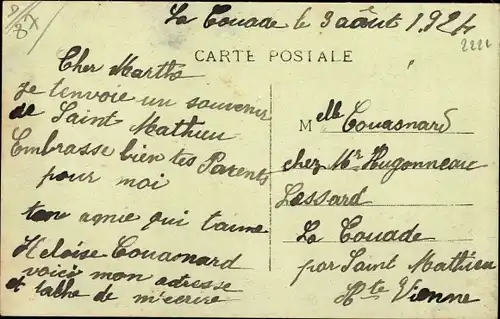 87
La Couade le 3 août 1924
2221
CARTE POSTALE
Cher Martho
Je tenvoie un souvenir
de Saint Mathieu
Embrasse bien tes Parents
pour moi
ton amie qui taime
Héloïse Couasnard
voici mon adresse
et tache de m'ecrire
Melle Couasnard
chez Mr Hugonneau
Lessard
La Couade
par Saint Mathieu
Hte Vienne